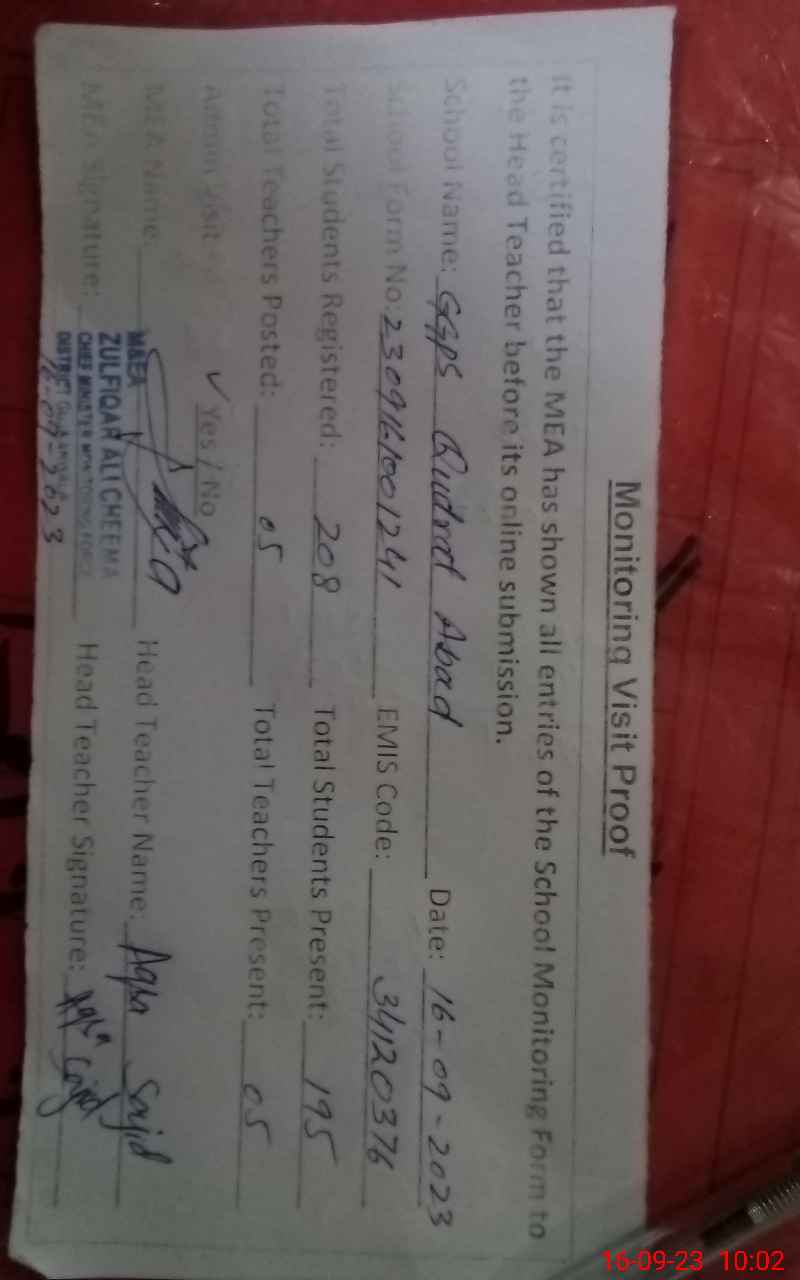 Monitoring Visit Proof
It is certified that the MEA has shown all entries of the School Monitoring Form to
the Head Teacher before its online submission.
School Name: GGPS Qudrat Abad Date: 16-09-2023
School Form No: 230916/001241 EMIS Code: 34120376
Total Students Registered: 208 Total Students Present: 195
Total Teachers Posted: 05 Total Teachers Present: 05
Admin Visit ✓ Yes / No
MEA Name: Head Teacher Name: Aqsa Sajid
MEA Signature: Head Teacher Signature: Aqsa Sajid
M&EA
ZULFIQAR ALI CHEEMA
CHIEF MINISTER MONITORING FORCE
DISTRICT
16-09-2023
16-09-23 10:02